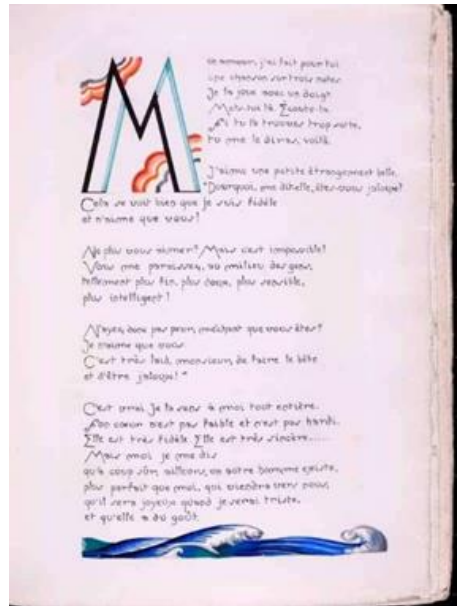 M
ce mamour, j'ai fait pour toi
une chanson sur trois notes.
Je la joue avec un doigt.
Mets-toi là. Écoute-la.
Si tu la trouves trop sotte,
tu me le diras, voilà.
J'aime une petite étrangement belle.
"Pourquoi, me dit-elle, êtes-vous jaloux?
Cela se voit bien que je suis fidèle
et n'aime que vous!
Ne plus vous aimer? Mais c'est impossible!
Vous me paraissez, au milieu des gens,
tellement plus fin, plus doux, plus sensible,
plus intelligent!
N'ayez donc pas peur, méchant que vous êtes!
Je n'aime que vous.
C'est très laid, monsieur, de faire la bête
et d'être jaloux!"
C'est vrai. Je la sens à moi tout entière.
Son cœur n'est pas faible et n'est pas hardi.
Elle est très fidèle Elle est très sincère......
Mais moi je me dis
qu'à coup sûr, ailleurs, un autre homme existe,
plus parfait que moi, qui viendra vers nous,
qu'il sera joyeux quand je serai triste,
et qu'elle a du goût.